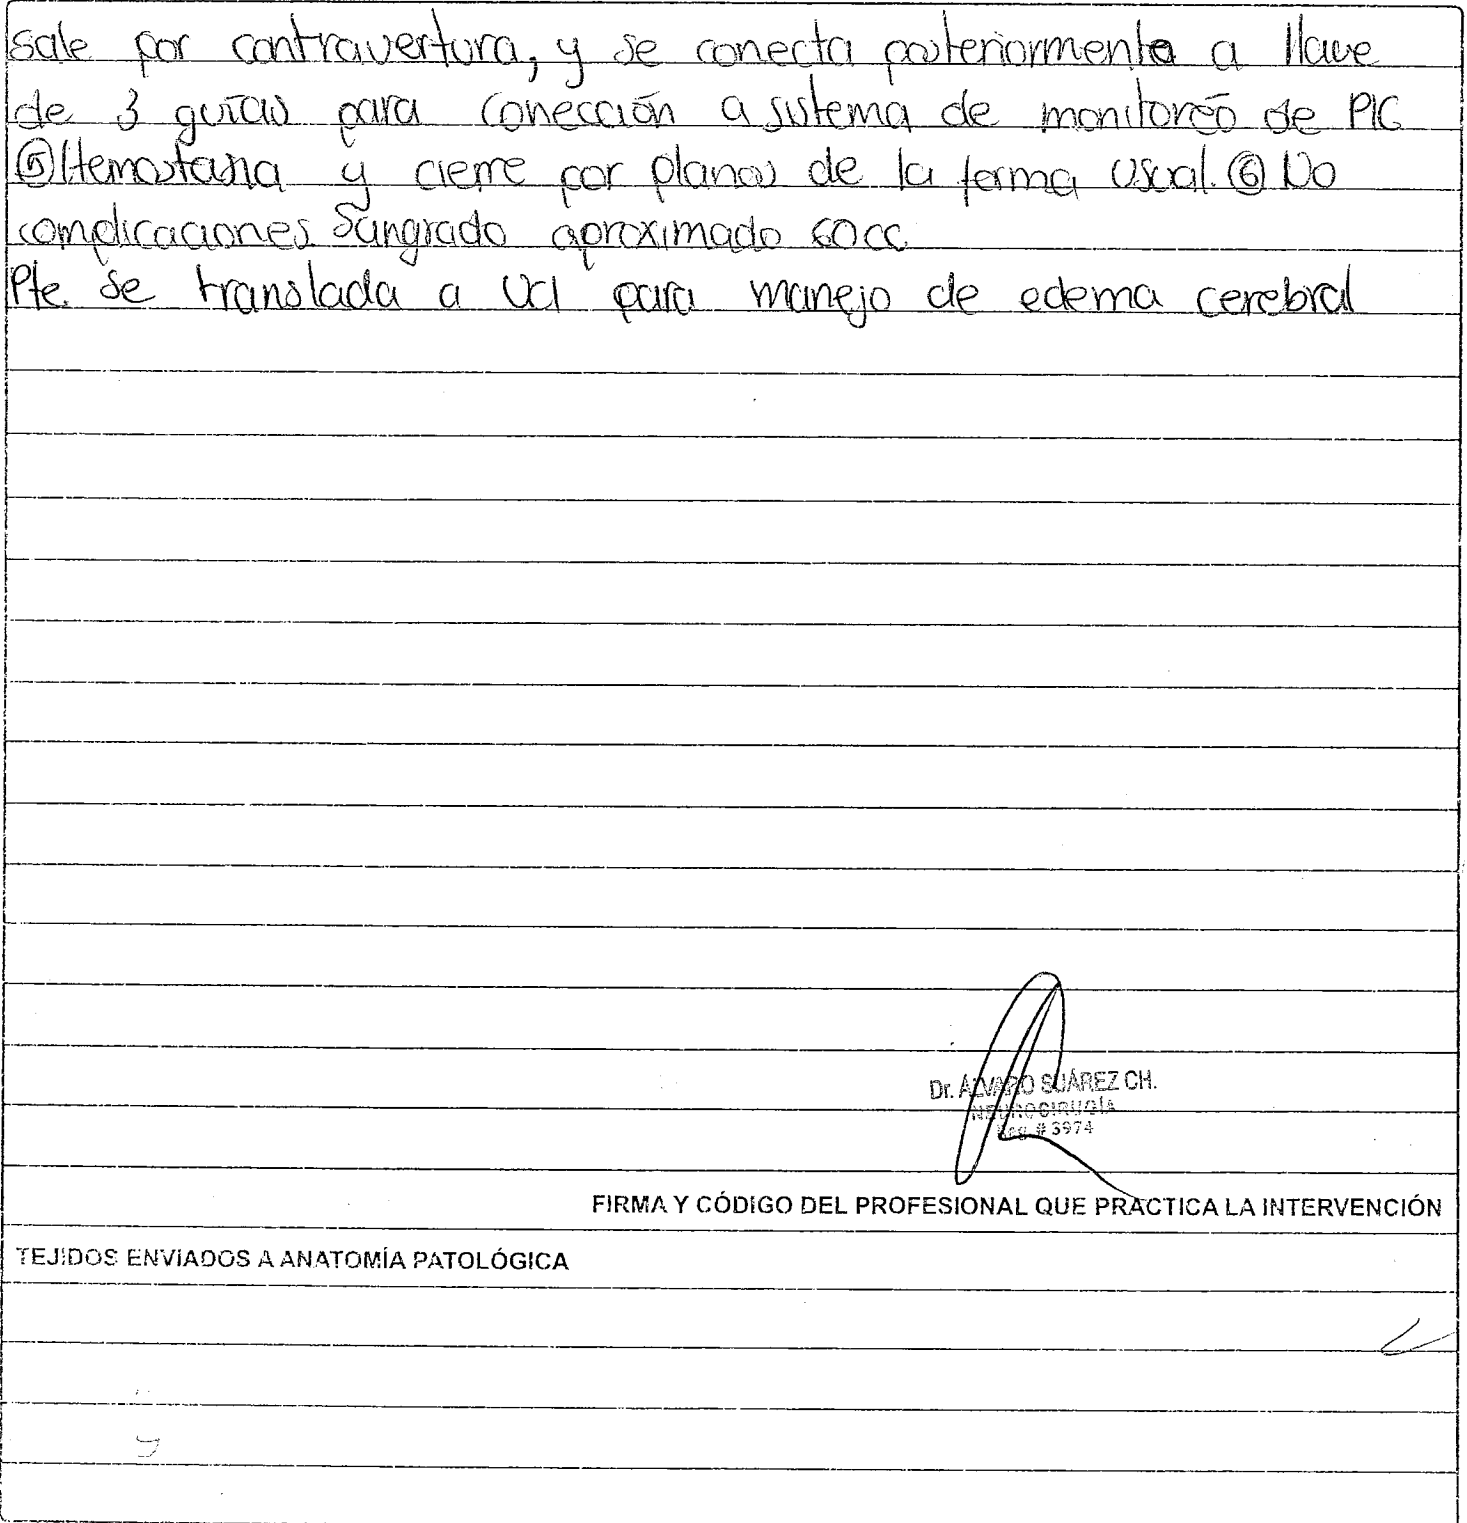 sale por contravertura, y se conecta posteriormente a llave
de 3 guías para conección a sistema de monitoreo de PIC
⑤ Hemostasia y cierre por planos de la forma usual. ⑥ No
complicaciones Sangrado aproximado 60cc
Pte. se translada a UCI para manejo de edema cerebral
Dr. ÁLVARO SUÁREZ CH.
NEUROCIRUGÍA
Reg. # 3974
FIRMA Y CÓDIGO DEL PROFESIONAL QUE PRACTICA LA INTERVENCIÓN
TEJIDOS ENVIADOS A ANATOMÍA PATOLÓGICA